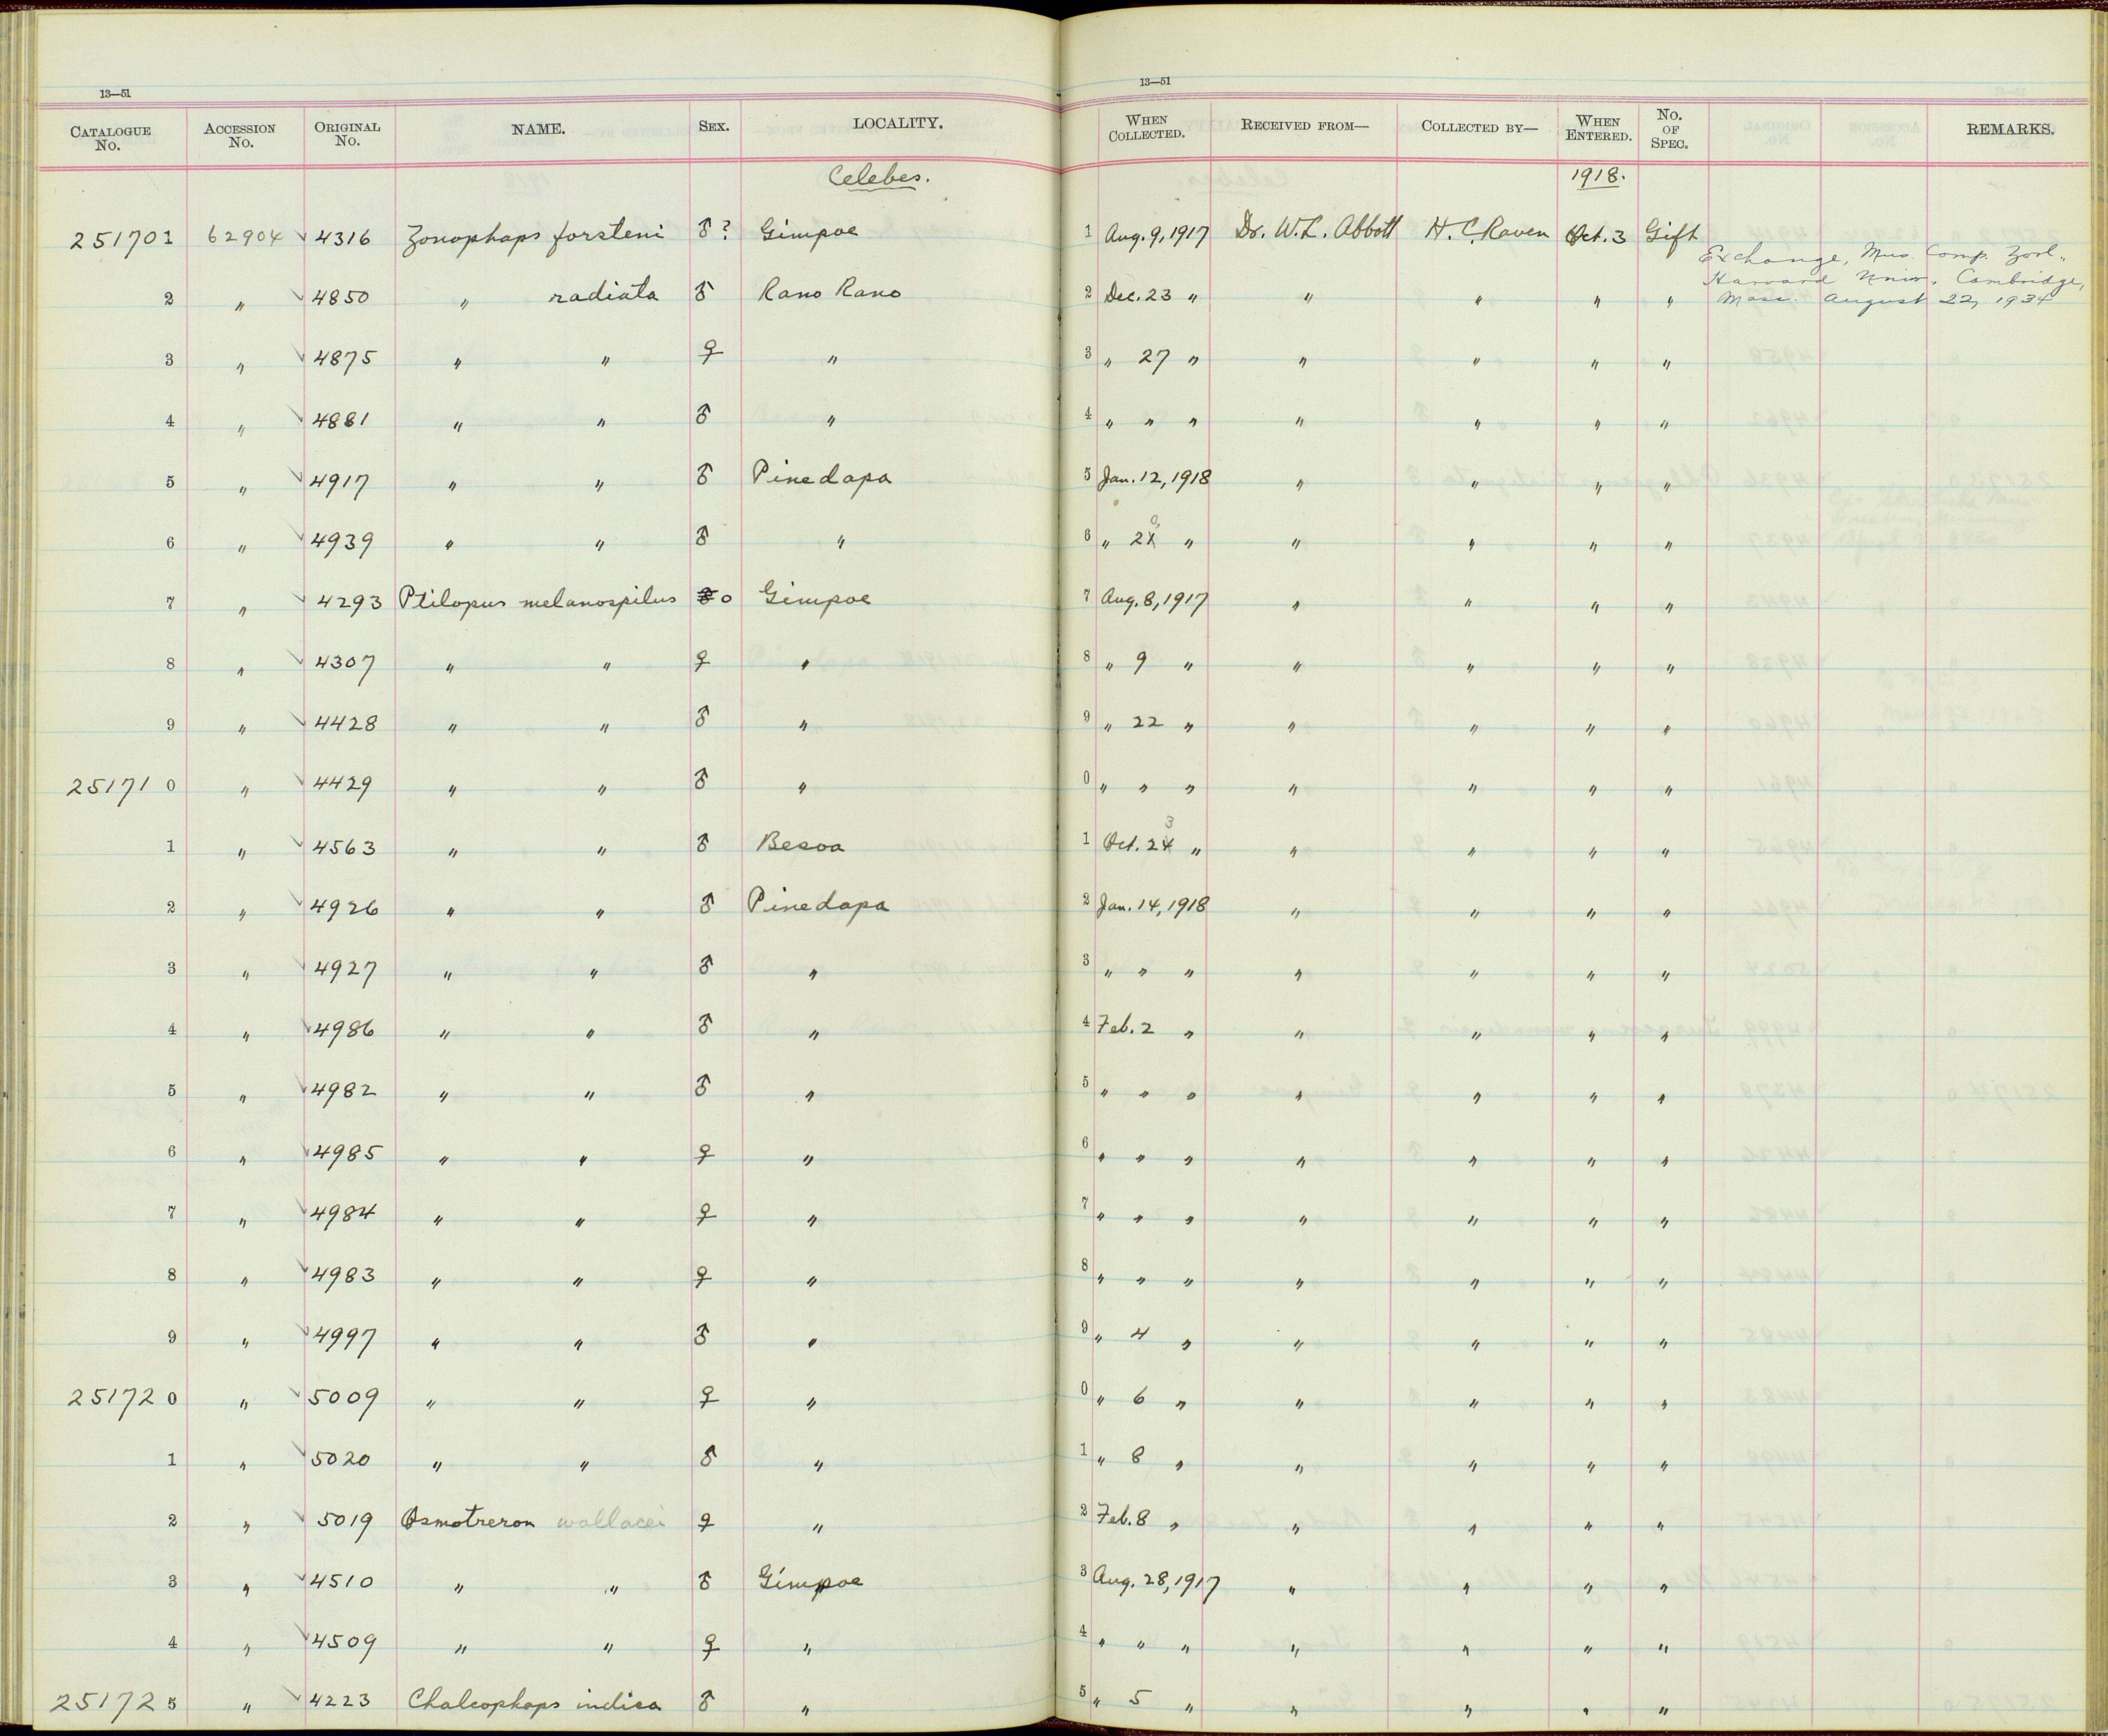 13—51
13—51
CATALOGUE No. ACCESSION No. ORIGINAL No. NAME. SEX. LOCALITY. WHEN COLLECTED. RECEIVED FROM— COLLECTED BY— WHEN ENTERED. No. OF SPEC. REMARKS.
Celebes. 1918.
251701 62904 4316 Zonophaps forsteni ♂? Gimpoe 1 Aug. 9, 1917 Dr. W. L. Abbott H. C. Raven Oct. 3 Gift
Exchange, Mus. Comp. Zool.,
Harvard Univ., Cambridge,
Mass. August 22, 1934
2 " 4850 " radiata ♂ Rano Rano 2 Dec. 23 " " " " "
3 " 4875 " " ♀ " 3 " 27 " " " " "
4 " 4881 " " ♂ " 4 " " " " " " "
5 " 4917 " " ♂ Pinedapa 5 Jan. 12, 1918 " " " "
6 " 4939 " " ♂ " 6 " 20 " " " " "
7 " 4293 Ptilopus melanospilus o Gimpoe 7 Aug. 8, 1917 " " " "
8 " 4307 " " ♀ " 8 " 9 " " " " "
9 " 4428 " " ♂ " 9 " 22 " " " " "
251710 " 4429 " " ♂ " 0 " " " " " " "
1 " 4563 " " ♂ Besoa 1 Oct. 23 " " " " "
2 " 4926 " " ♂ Pinedapa 2 Jan. 14, 1918 " " " "
3 " 4927 " " ♂ " 3 " " " " " " "
4 " 4986 " " ♂ " 4 Feb. 2 " " " " "
5 " 4982 " " ♂ " 5 " " " " " " "
6 " 4985 " " ♀ " 6 " " " " " " "
7 " 4984 " " ♀ " 7 " " " " " " "
8 " 4983 " " ♀ " 8 " " " " " " "
9 " 4997 " " ♂ " 9 " 4 " " " " "
251720 " 5009 " " ♀ " 0 " 6 " " " " "
1 " 5020 " " ♂ " 1 " 8 " " " " "
2 " 5019 Osmotreron wallacei ♀ " 2 Feb. 8 " " " " "
3 " 4510 " " ♂ Gimpoe 3 Aug. 28, 1917 " " " "
4 " 4509 " " ♀ " 4 " " " " " " "
251725 " 4223 Chalcophaps indica ♂ " 5 " 5 " " " " "